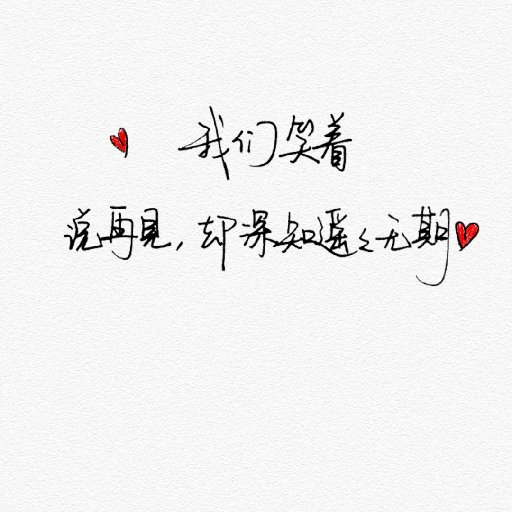 我们笑着
说再見,却深知遥々无期